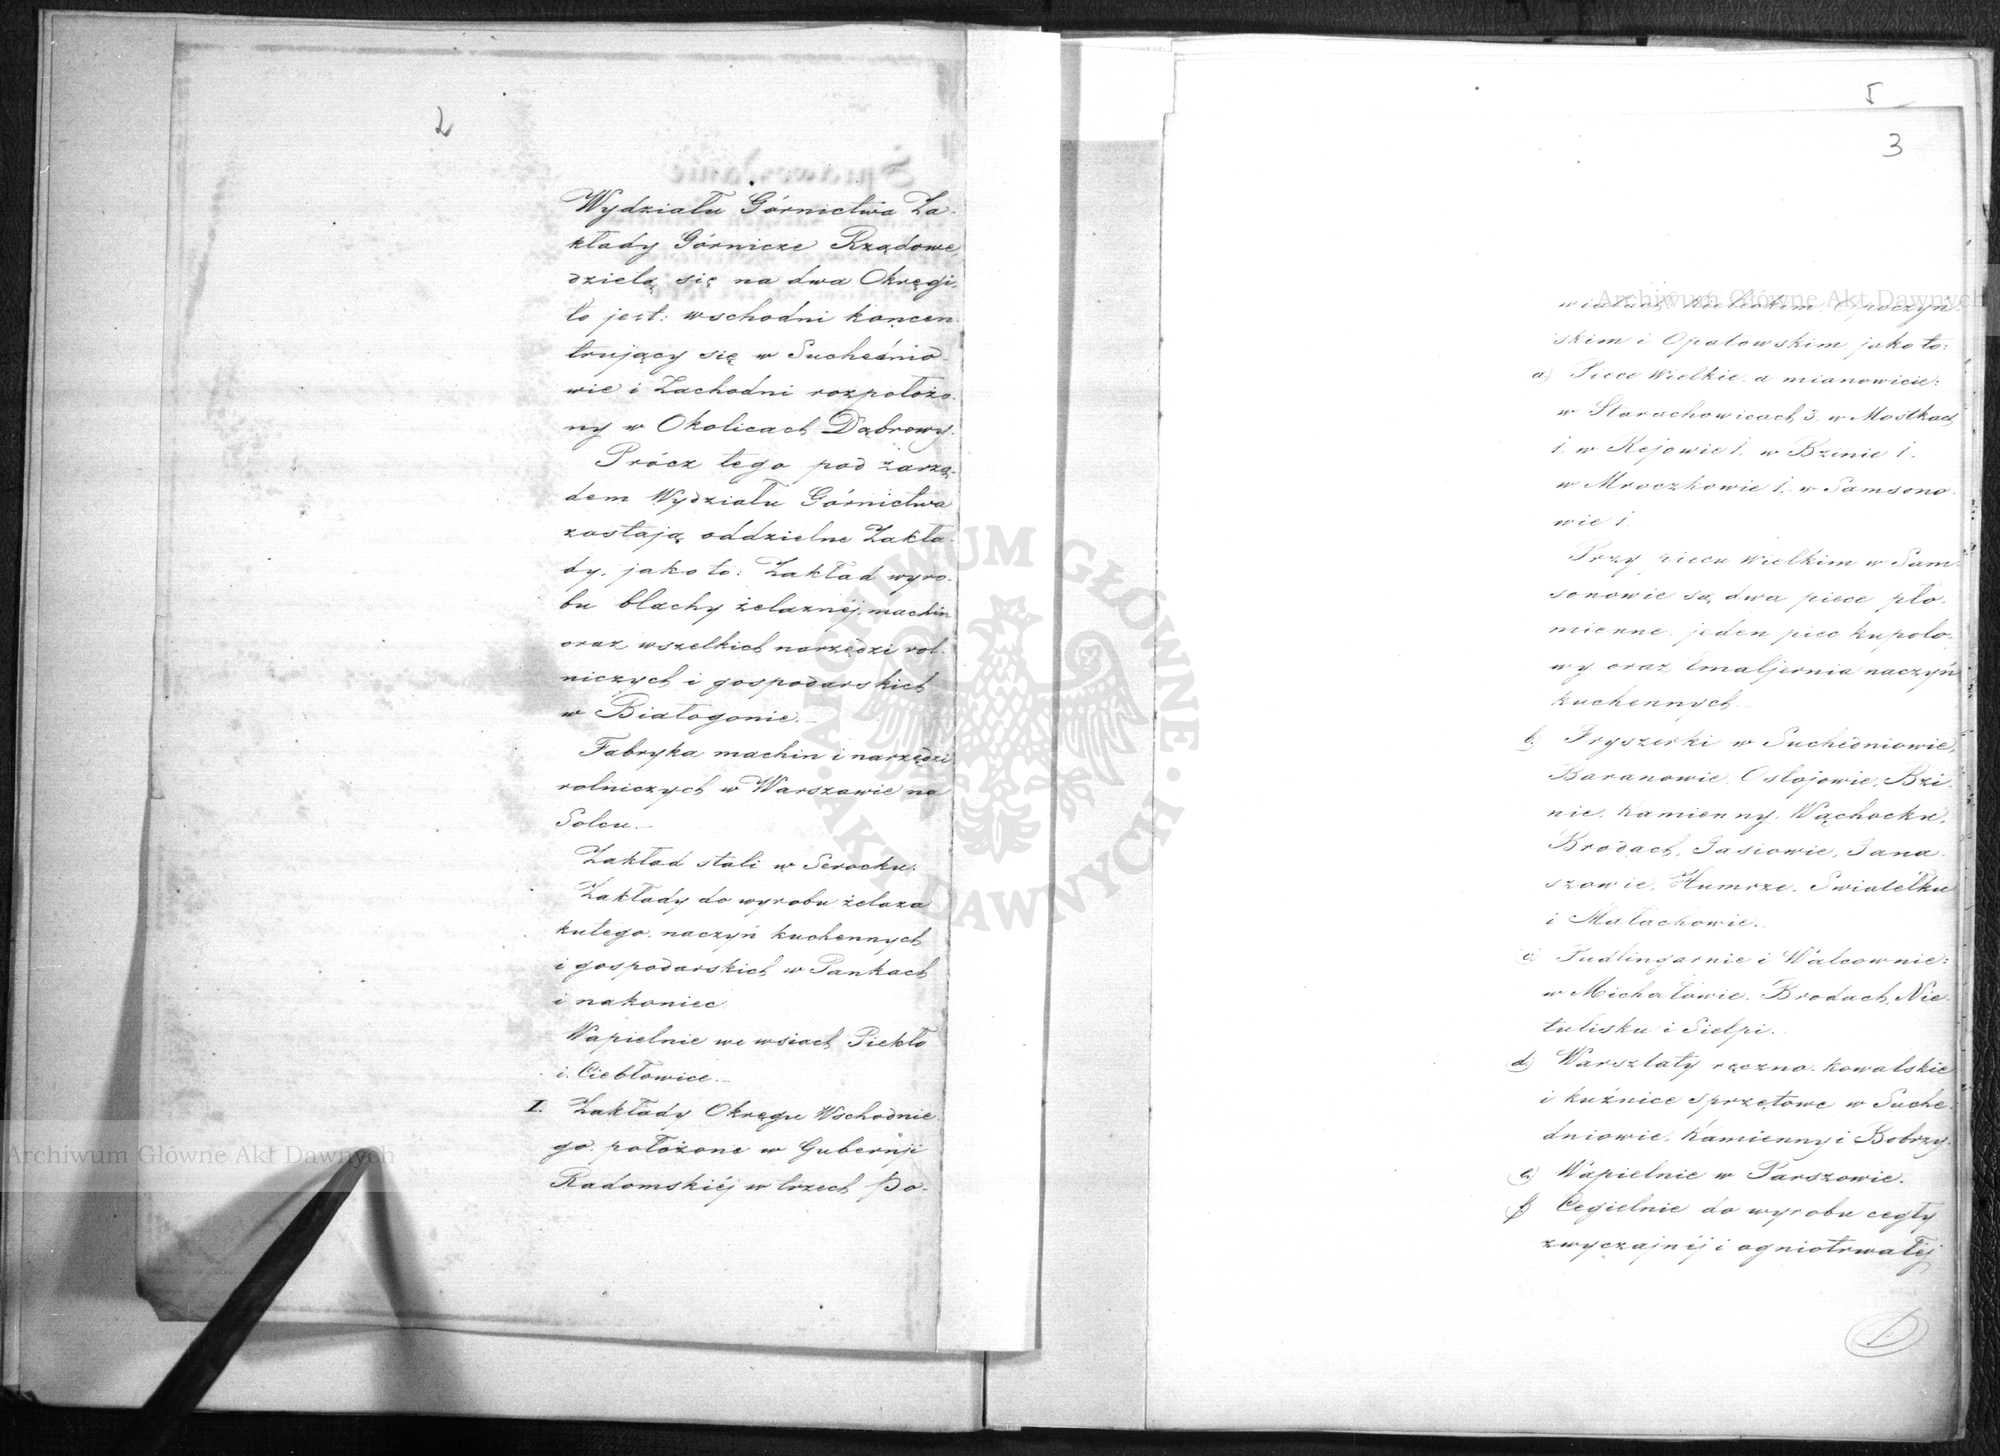 2
Wydziału Górnictwa Za-
kłady Górnicze Rządowe,
dzielą się na dwa Okręgi,
to jest: wschodni koncen-
trujący się w Suchednio-
wie i Zachodni rozpołożo-
ny w Okolicach Dąbrowy.
Prócz tego pod zarzą-
dem Wydziału Górnictwa
zostają oddzielne Zakła-
dy, jako to: Zakład wyro-
bu blachy żelaznéj, machin
oraz wszelkich narzędzi rol-
niczych i gospodarskich
w Białogonie.—
Fabryka machin i narzędzi
rolniczych w Warszawie na
Solcu.—
Zakład stali w Serocku.
Zakłady do wyrobu żelaza
kutego, naczyń kuchennych
i gospodarskich w Pankach
i nakoniec
Wapielnie we wsiach Piekło
i Ciebłowice.—
I. Zakłady Okręgu Wschodnie-
go położone w Gubernji
Radomskiéj w trzech Po-
5
3
wiatach Kieleckim, Opoczyń-
skim i Opatowskim jako to:
a) Piece Wielkie, a mianowicie:
w Starachowicach 3, w Mostkach
1, w Rejowie 1, w Bzinie 1,
w Mroczkowie 1, w Samsono-
wie 1.
Przy piecu wielkim w Sam-
sonowie są dwa piece pło-
mienne, jeden piec kupolo-
wy oraz Emaljernia naczyń
kuchennych.—
b) Fryszerki w Suchedniowie,
Baranowie, Ostojowie, Bzi-
nie, Kamienny, Wąchocku,
Brodach, Jasiowie, Jana-
szowie, Humrze, Swiatełku
i Małachowie.
c) Pudlingarnie i Walcownie:
w Michałowie, Brodach, Nie-
tulisku i Sielpi.—
d) Warsztaty ręczno-kowalskie
i kuźnice sprzętowe w Suche-
dniowie, Kamienny i Bobrzy.
e) Wapielnie w Parszowie.
f) Cegielnie do wyrobu cegły
zwyczajnéj i ogniotrwałéj
Archiwum Główne Akt Dawnych
Archiwum Główne Akt Dawnych
ARCHIWUM GŁÓWNE AKT DAWNYCH